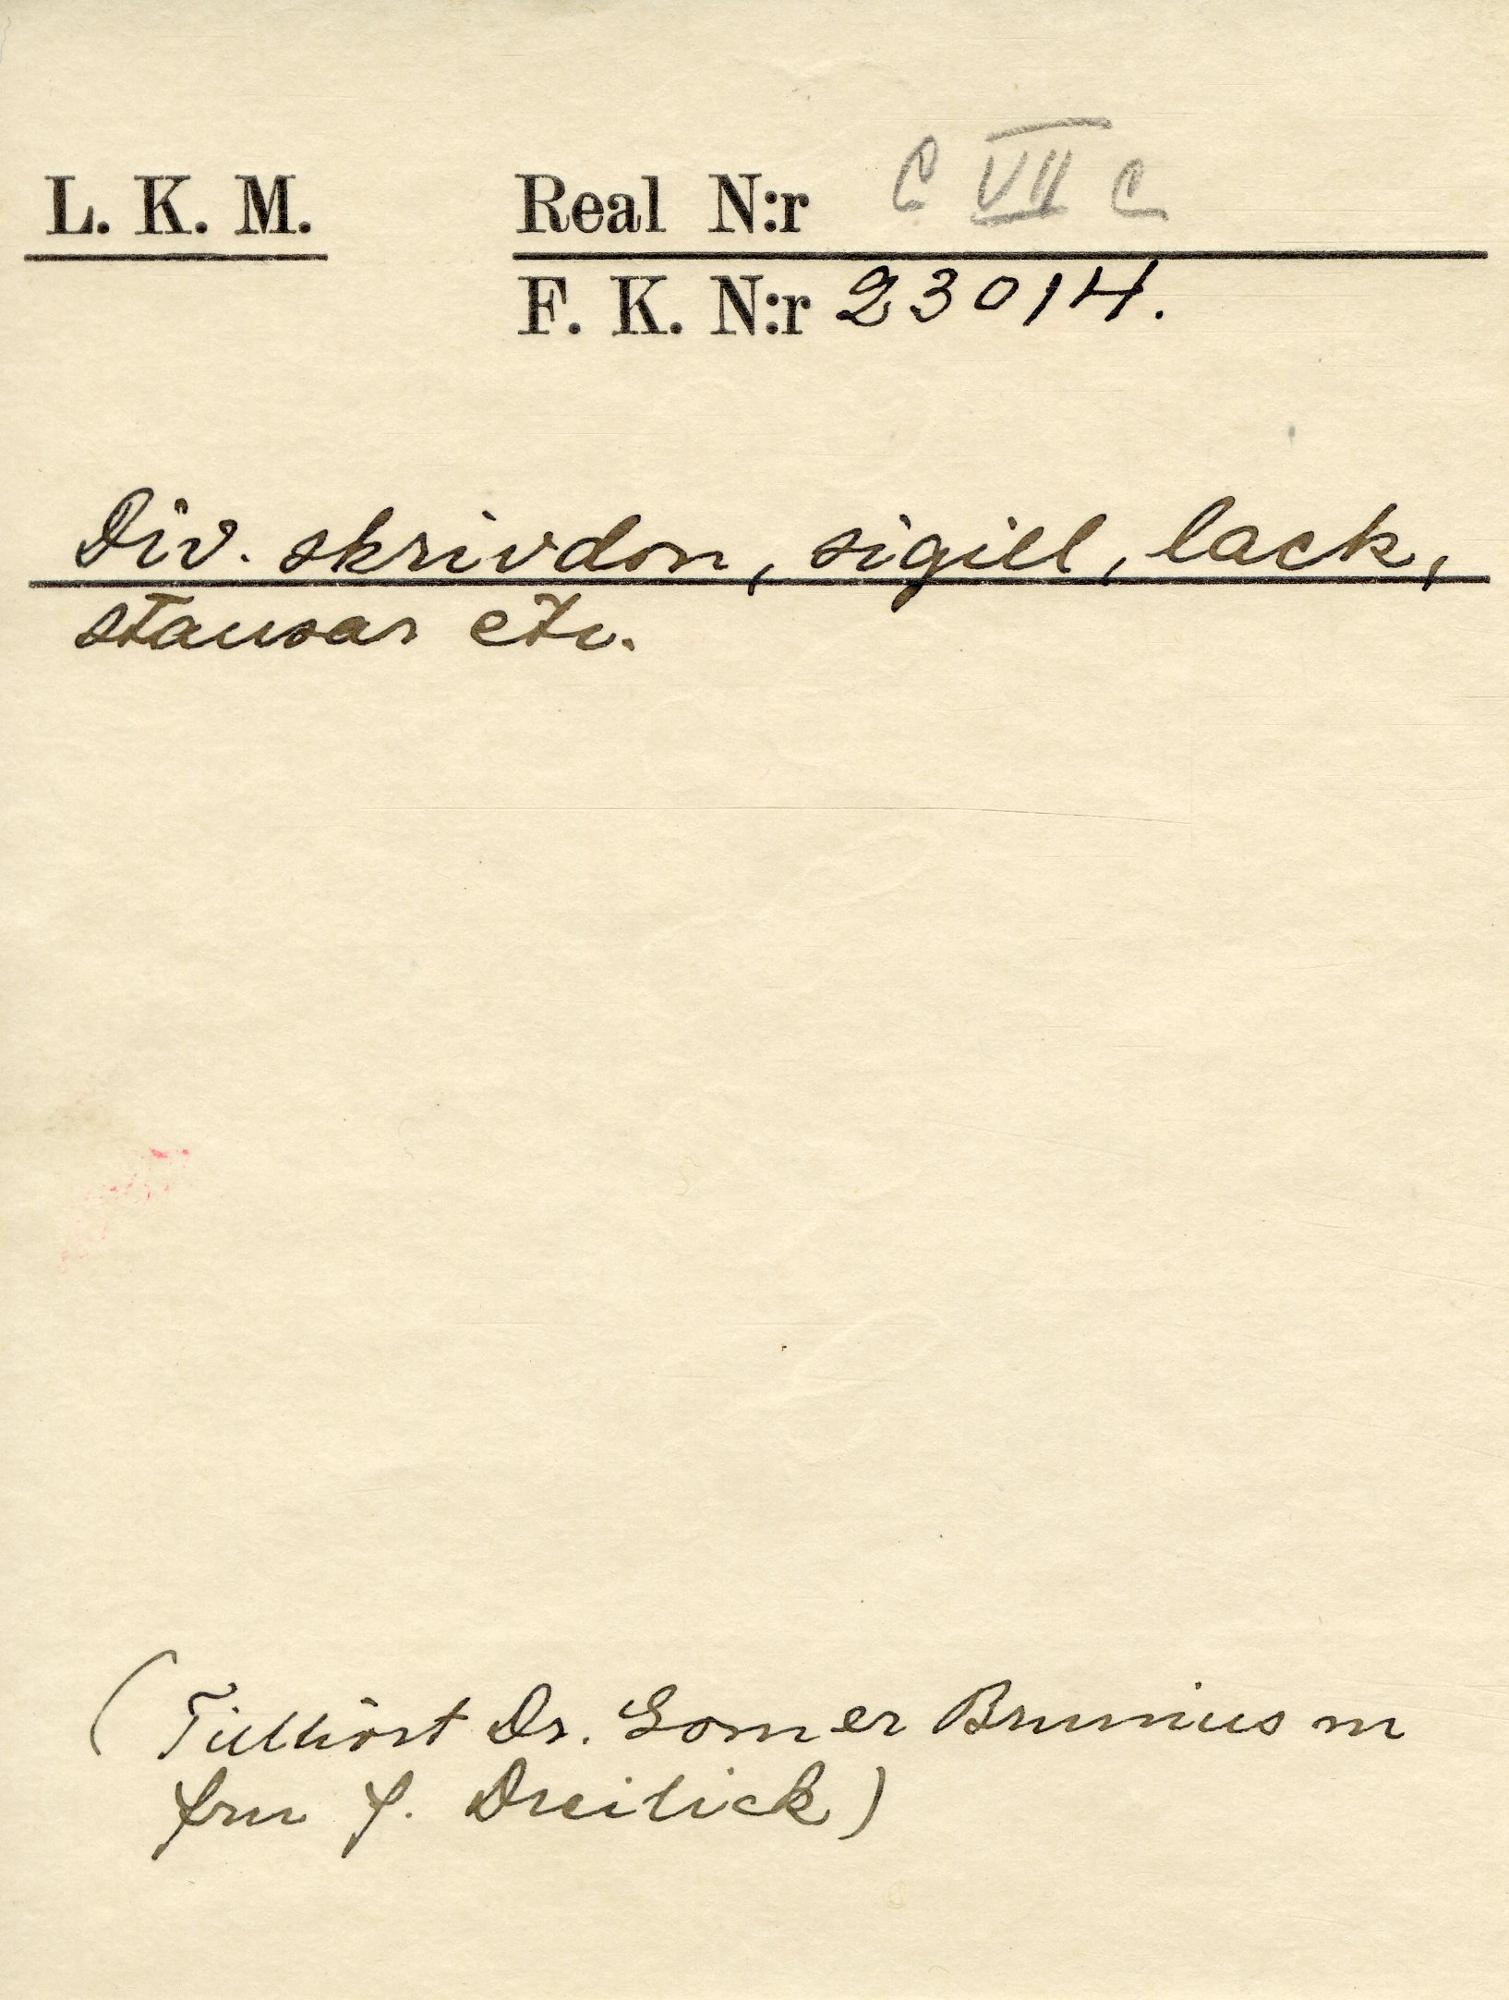 L. K. M.
Real N:r C VII c
F. K. N:r 23014.
Div. skrivdon, sigill, lack,
stansar etc.
(Tillhört Dr. Gomer Brunius m
fru f. Dreilick)